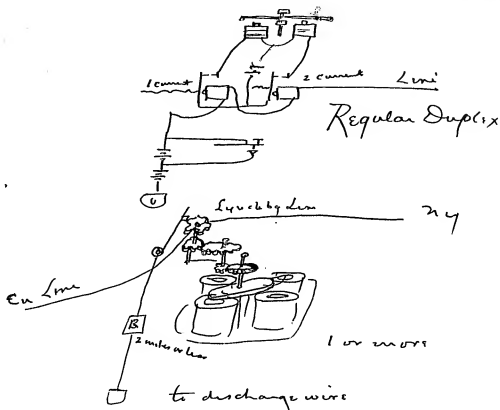 1 current
2 current
Line
Regular Duplex
Line
n y
Line
B
2 miles or less
1 or more
to discharge wire